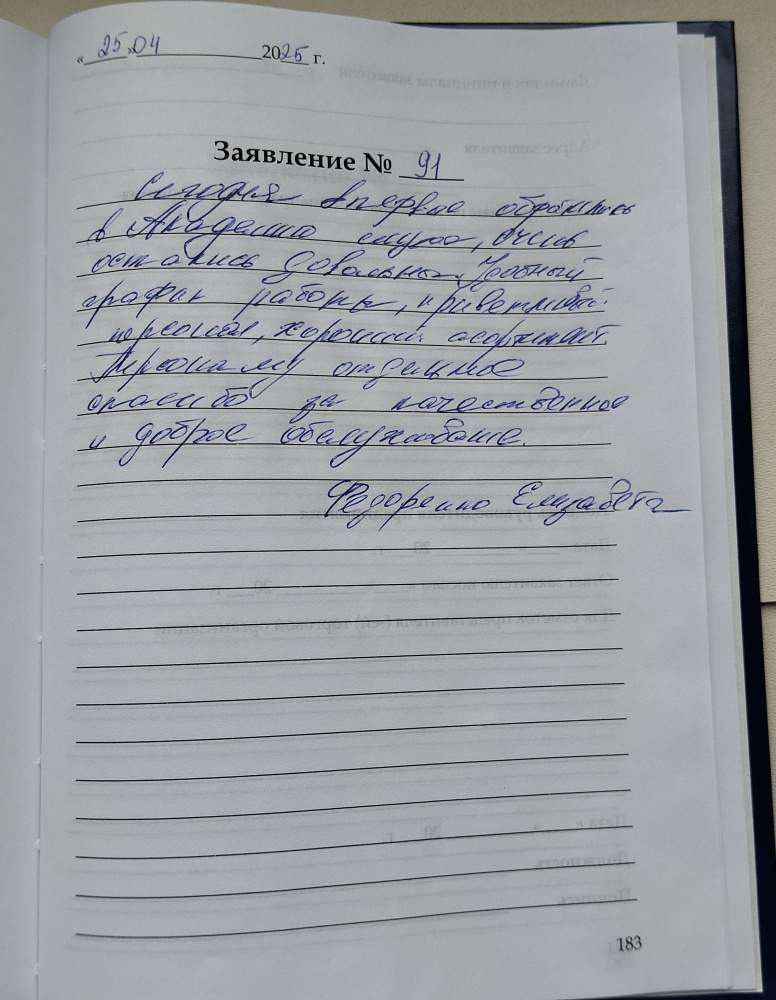 « 25 » 04 2025 г.
Заявление № 91
Сегодня впервые обратились
в Академию слуха, очень
остались довольны. Удобный
график работы, приветливый
персонал, хороший ассортимент.
Персоналу отдельное
спасибо за качественное
и доброе обслуживание.
Федоренко Елизавета
183